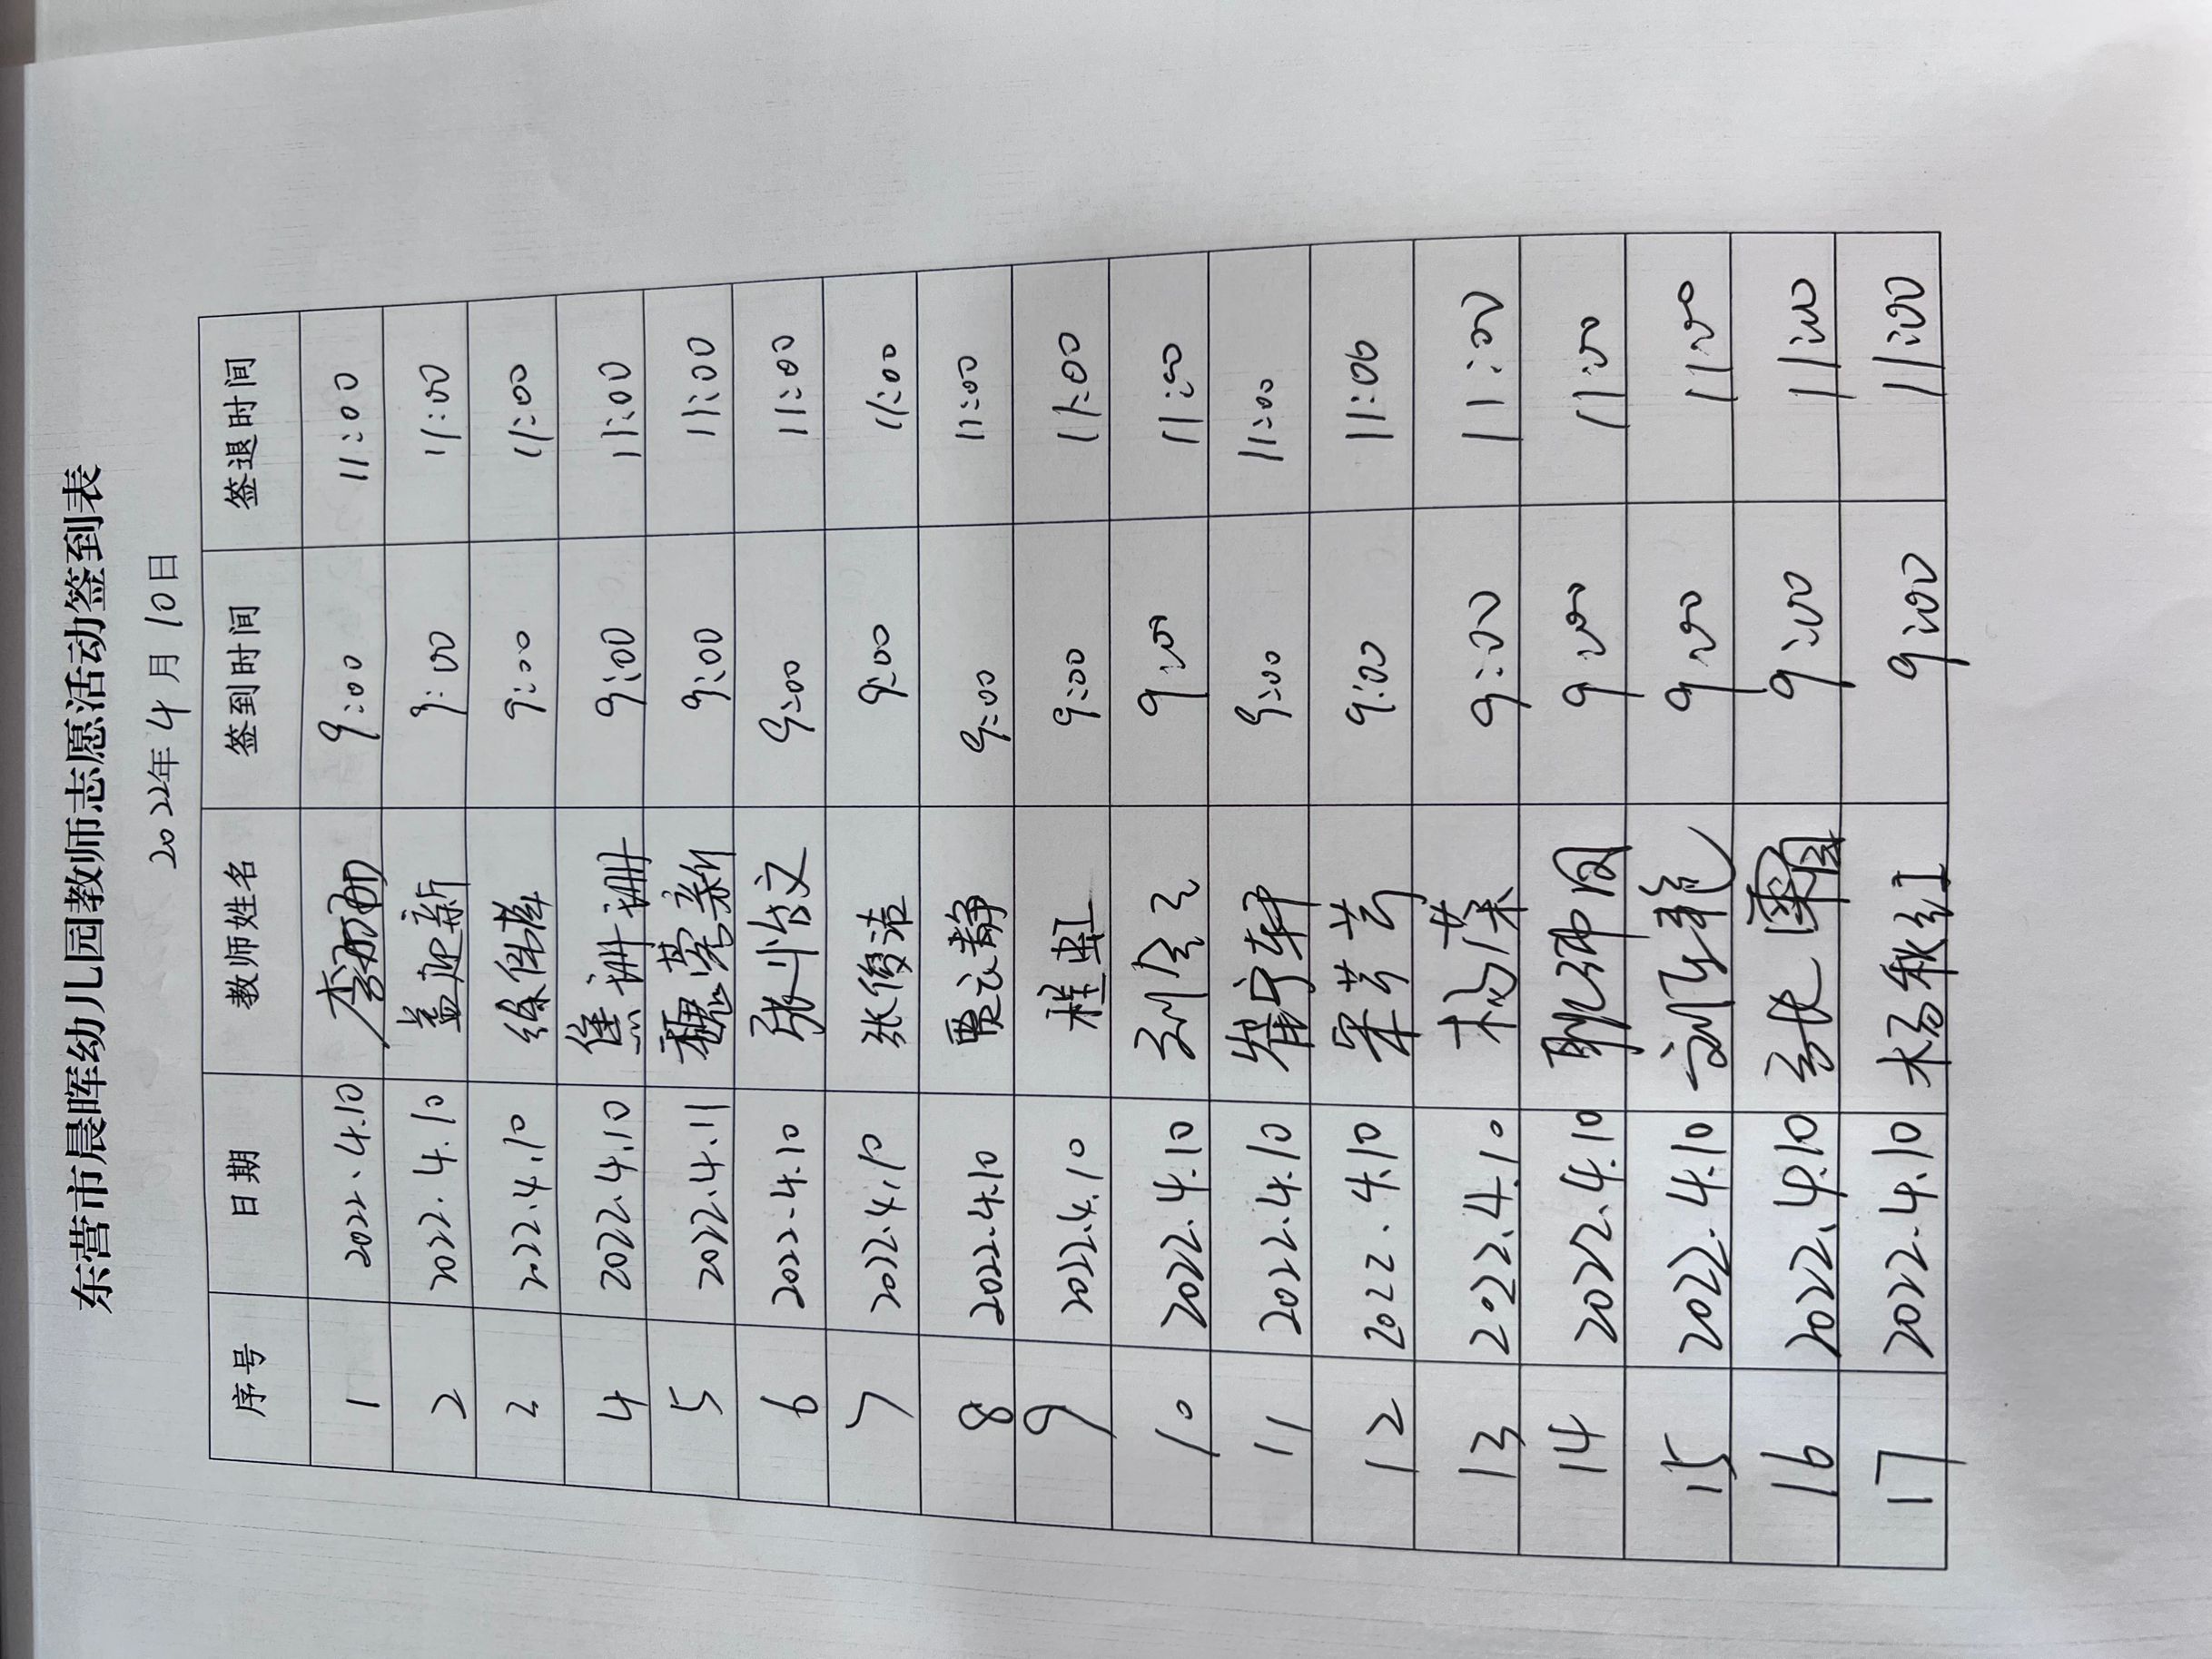 东营市晨晖幼儿园教师志愿活动签到表
2022年4月10日
序号 日期 教师姓名 签到时间 签退时间
1 2022.4.10 李娜 9:00 11:00
2 2022.4.10 盖迎新 9:00 11:00
3 2022.4.10 徐伟萍 9:00 11:00
4 2022.4.10 焦姗姗 9:00 11:00
5 2022.4.11 魏亮新 9:00 11:00
6 2022.4.10 张 文 9:00 11:00
7 2022.4.10 张俊洁 9:00 11:00
8 2022.4.10 贾云静 9:00 11:00
9 2022.4.10 程虹 9:00 11:00
10 2022.4.10 刘会云 9:00 11:00
11 2022.4.10 崔宁轩 9:00 11:00
12 2022.4.10 宋芳芳 9:00 11:00
13 2022.4.10 杨荣 9:00 11:00
14 2022.4.10 9:00 11:00
15 2022.4.10 刘 艳 9:00 11:00
16 2022.4.10 9:00 11:00
17 2022.4.10 杨秋红 9:00 11:00